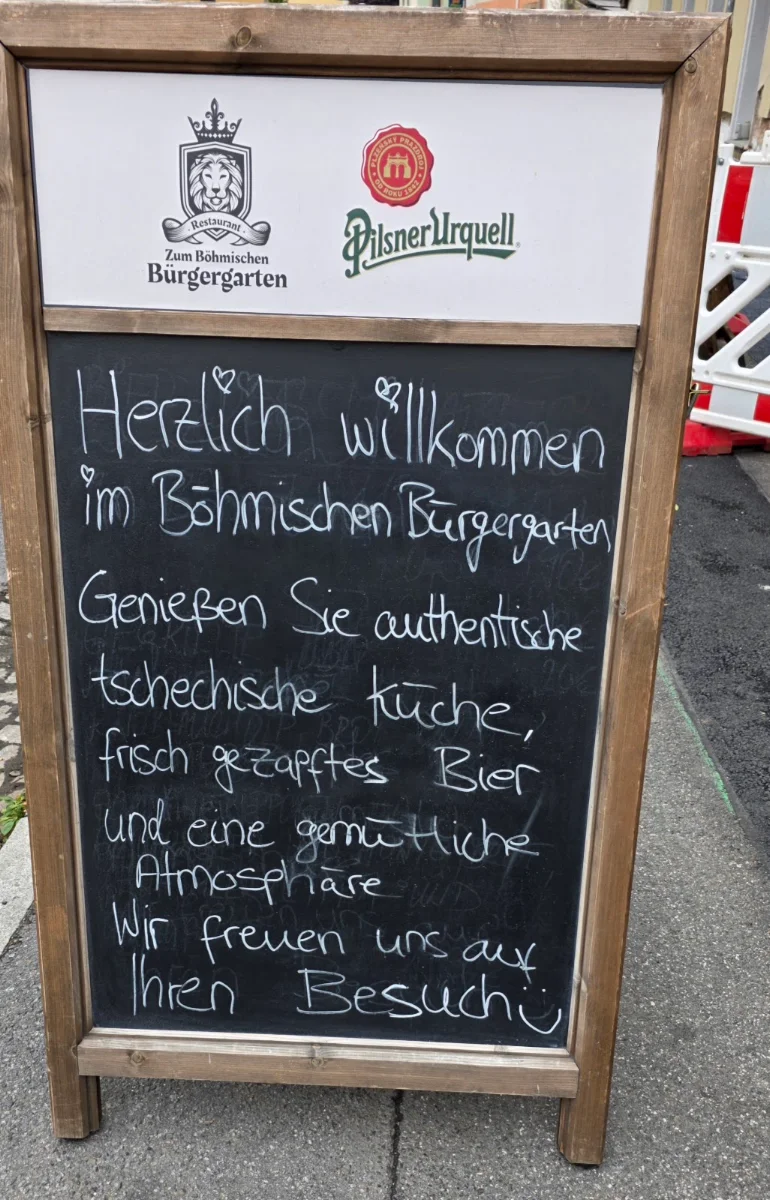 Restaurant
Zum Böhmischen
Bürgergarten
PLZEŇSKÝ PRAZDROJ
OD ROKU 1842
Pilsner Urquell
Herzlich willkommen
im Böhmischen Bürgergarten
Genießen Sie authentische
tschechische Küche,
frisch gezapftes Bier
und eine gemütliche
Atmosphäre
Wir freuen uns auf
Ihren Besuch